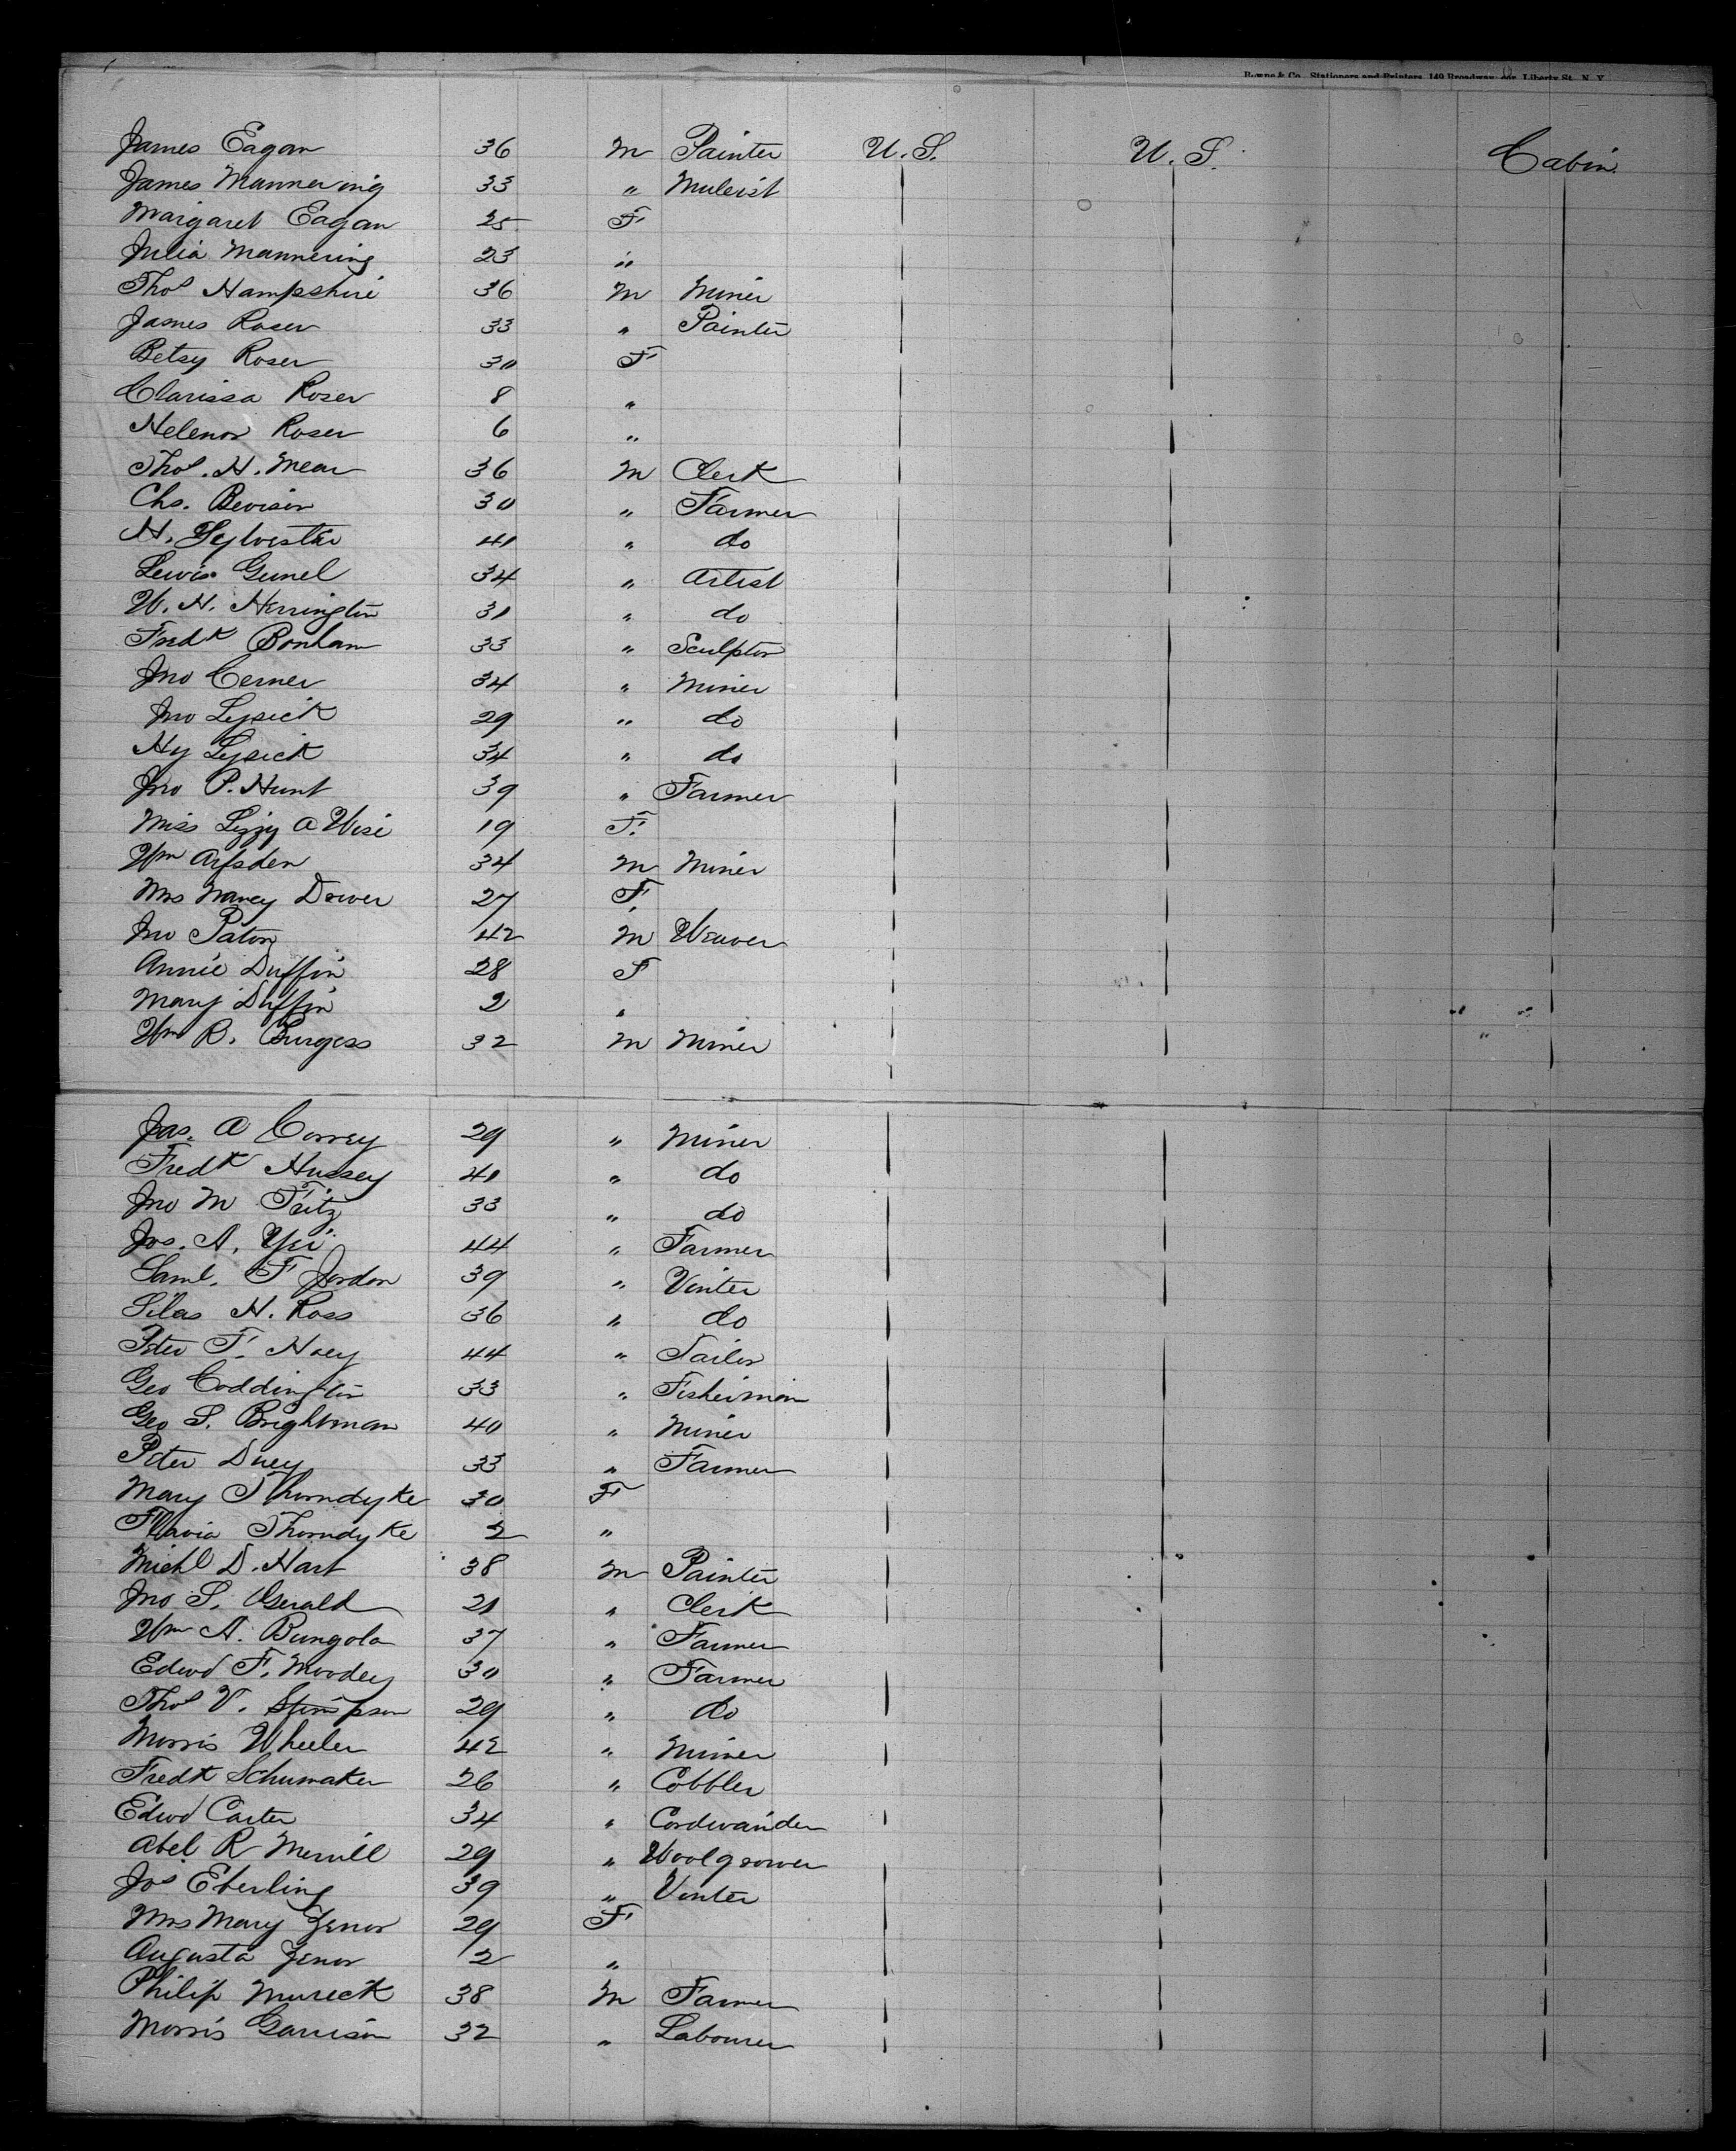 Bowne & Co., Stationers and Printers, 149 Broadway, cor. Liberty St., N. Y.
James Eagan 36 M Painter U.S. U.S. Cabin
James Mannering 33 " Muleist
Margaret Eagan 25 F
Julia Mannering 23 "
Thos Hampshire 36 M Miner
James Roser 33 " Painter
Betsy Roser 30 F
Clarissa Roser 8 "
Helenor Roser 6 "
Thos. H. Mear 36 M Clerk
Chs. Bevisor 30 " Farmer
H. Sylvester 41 " do
Lewis Gunel 34 " Artist
W. H. Herrington 31 " do
Fredk Bonham 33 " Sculptor
Jno Cerner 34 " Miner
Jno Lysick 29 " do
Hy Lysick 34 " do
Jno P. Hunt 39 " Farmer
Miss Lizzy A Wise 19 F.
Wm 34 M Miner
Mrs Nancy Dower 27 F.
Jno Paton 42 M Weaver
Annie Duffin 28 F
Mary Duffin 2 "
Wm R. Burgess 32 M Miner
Jas. A Correy 29 " Miner
Fredk Hussey 41 " do
Jno M Fitz 33 " do
Jos. A. 44 " Farmer
Saml. F Jordon 39 " Vinter
Silas H. Ross 36 " do
Peter F. Hoey 44 " Tailor
Geo Coddington 33 " Fisherman
Geo S. Brightman 40 " Miner
Peter Duey 33 " Farmer
Mary Thorndyke 30 F
Flavia Thorndyke 2 "
Michl D. Hart 38 M Painter
Jno S. Gerald 21 " Clerk
Wm A. Bungola 37 " Farmer
Edwd F. Moodey 30 " Farmer
Thos V. Stimpson 29 " do
Morris Wheeler 42 " Miner
Fredk Schumaker 26 " Cobbler
Edwd Carter 34 " Cordwainder
Abel R Merrill 29 " Woolgrower
Jos Eberling 39 " Vinter
Mrs Mary Zenor 29 F
Augusta Zenor 2 "
Philip Mureck 38 M Farmer
Morris Garrison 32 " Labourer